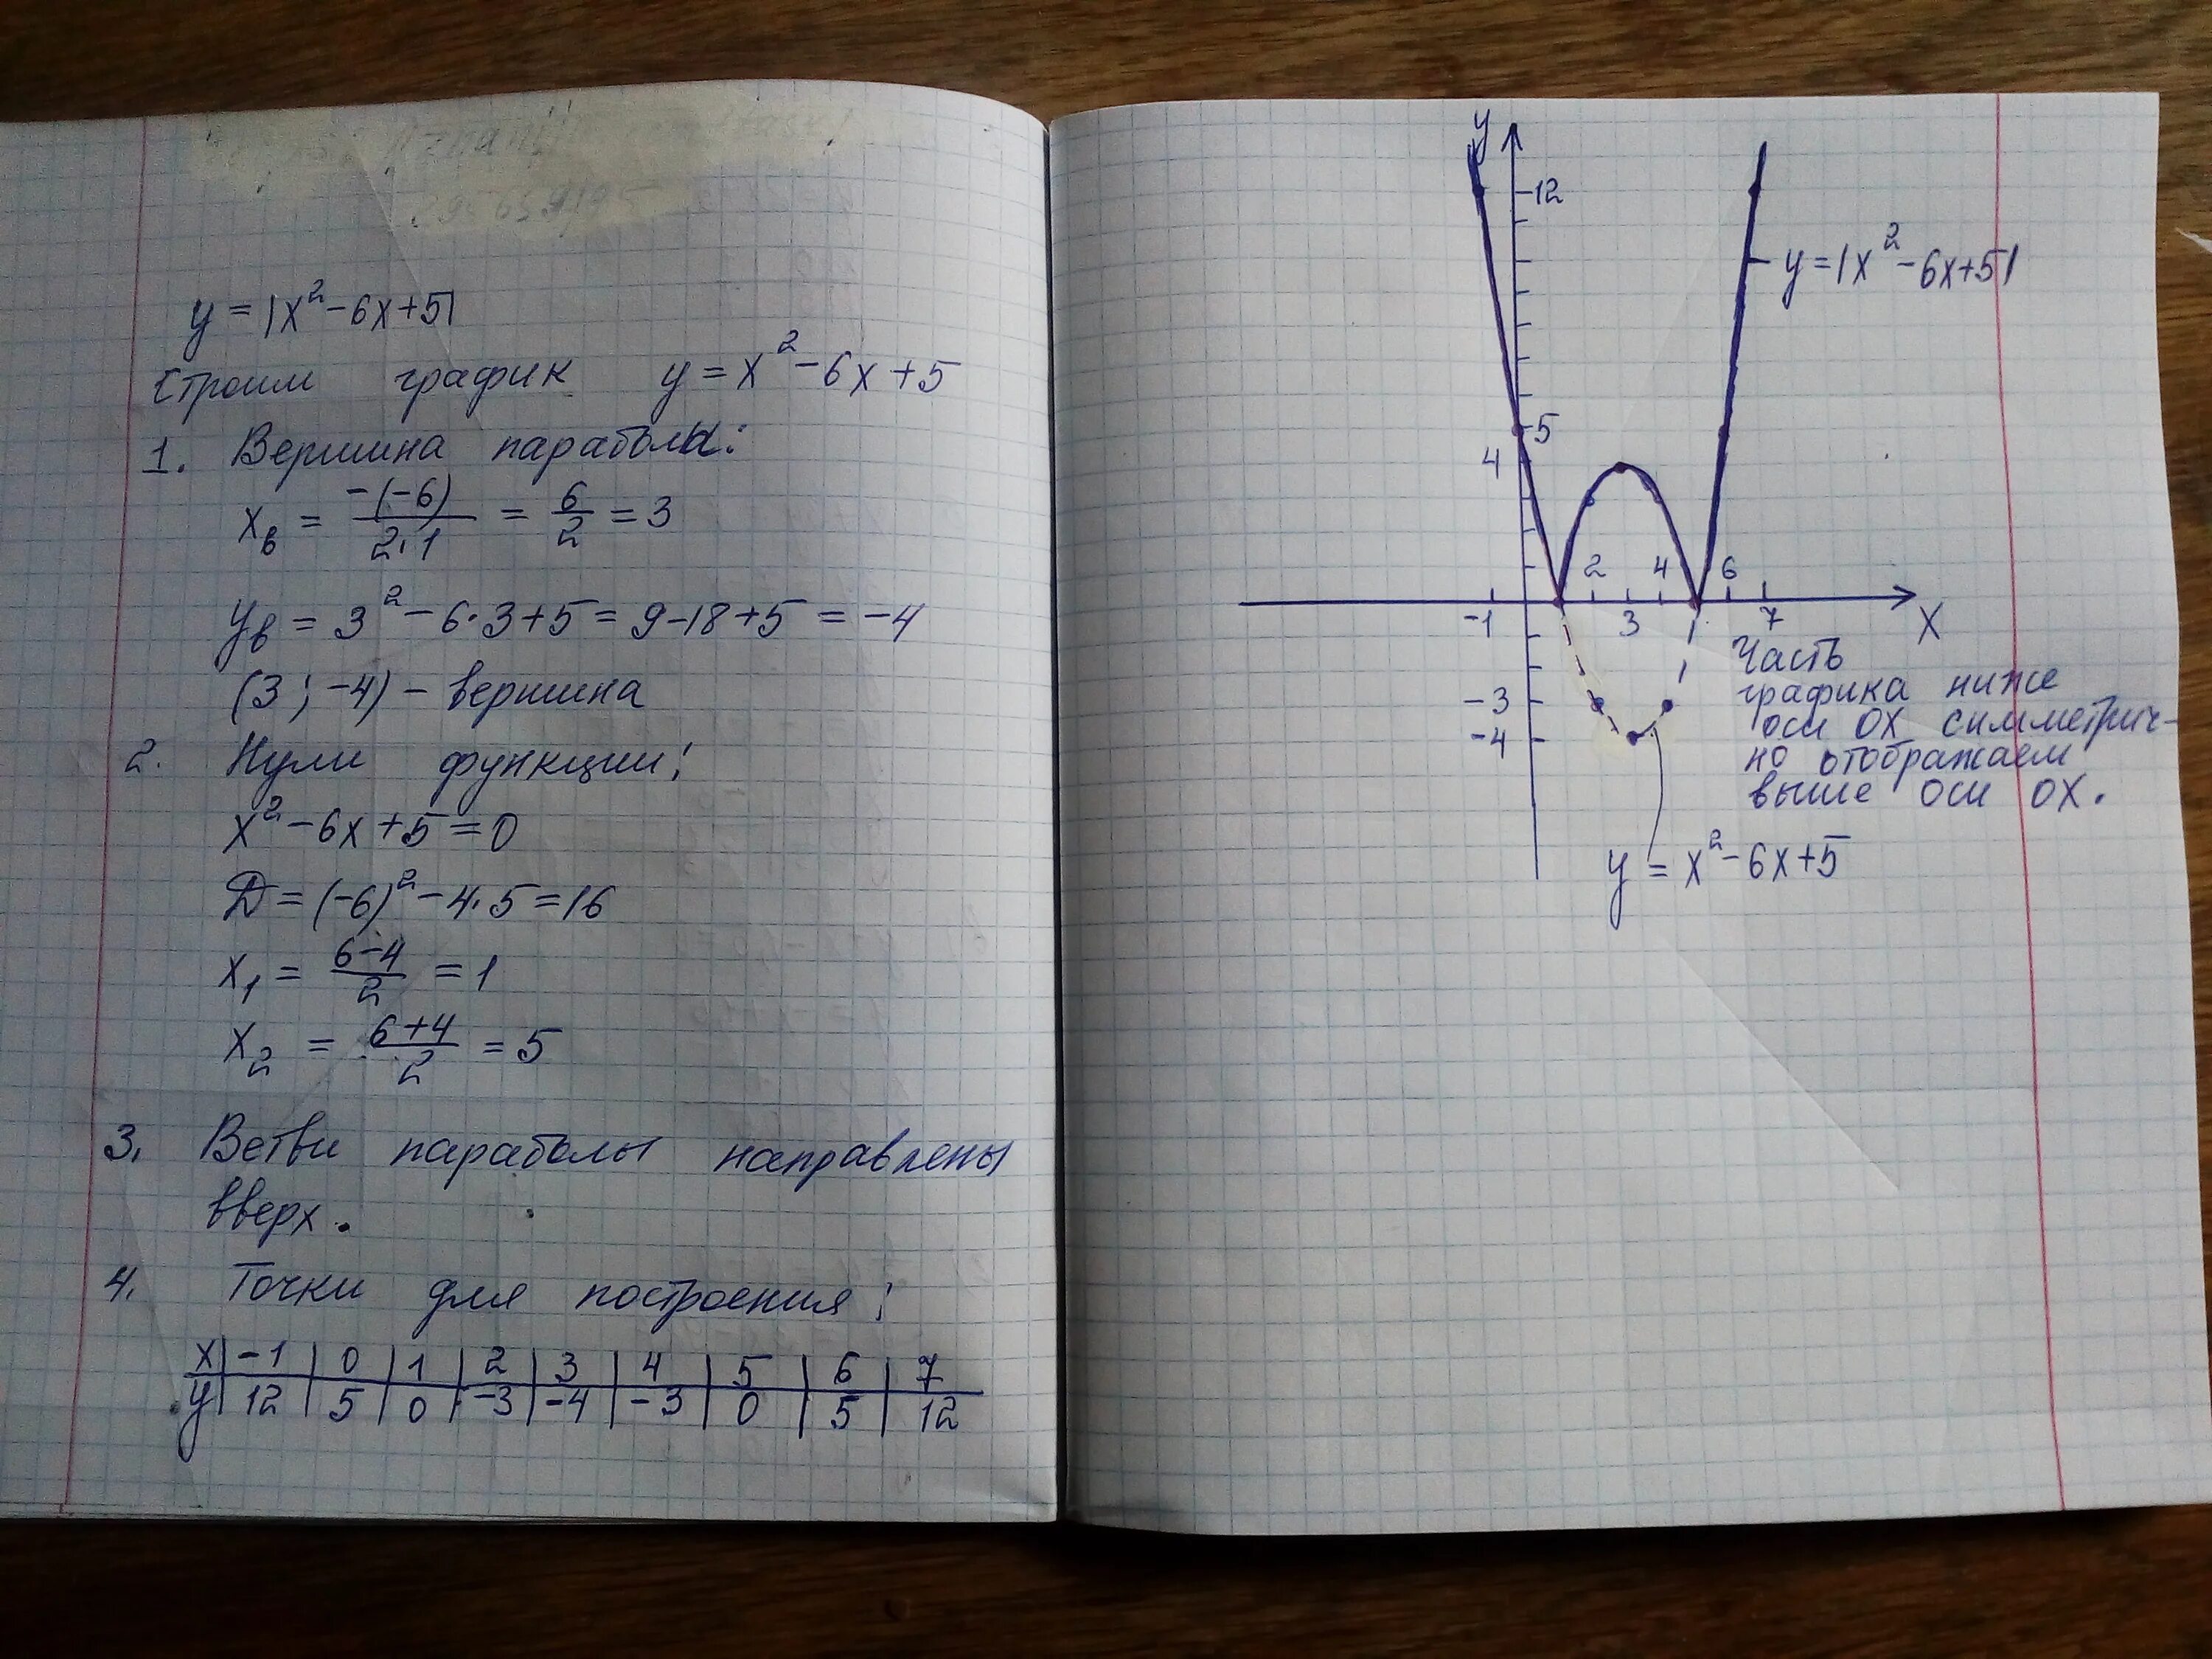 y = |x²-6x+5|
Строим график y = x²-6x+5
1. Вершина параболы:
xв = -(-6)/2·1 = 6/2 = 3
yв = 3²-6·3+5 = 9-18+5 = -4
(3; -4) - вершина
2. Нули функции:
x²-6x+5=0
D = (-6)²-4·5=16
x₁ = 6-4/2 = 1
x₂ = 6+4/2 = 5
3. Ветви параболы направлены
вверх.
4. Точки для построения:
x | -1 | 0 | 1 | 2 | 3 | 4 | 5 | 6 | 7
y | 12 | 5 | 0 | -3 | -4 | -3 | 0 | 5 | 12
y
12
y=|x²-6x+5|
5
4
2 4 6
-1 3 7
x
Часть
-3 графика ниже
-4 оси ОХ симметрич-
но отображаем
выше оси ОХ.
y = x²-6x+5